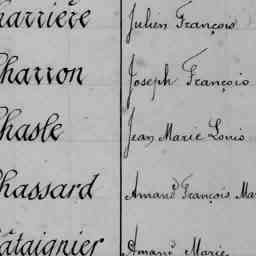 harrière Julien François
harron Joseph François
hasle Jean Marie Louis
hassard Amand François Mar
hâtaignier Amand Marie